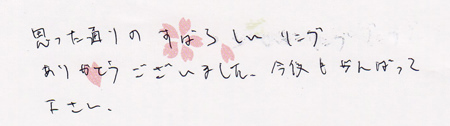 思った通りの すばらしい リング
ありがとうございました。今後もがんばって
下さい。